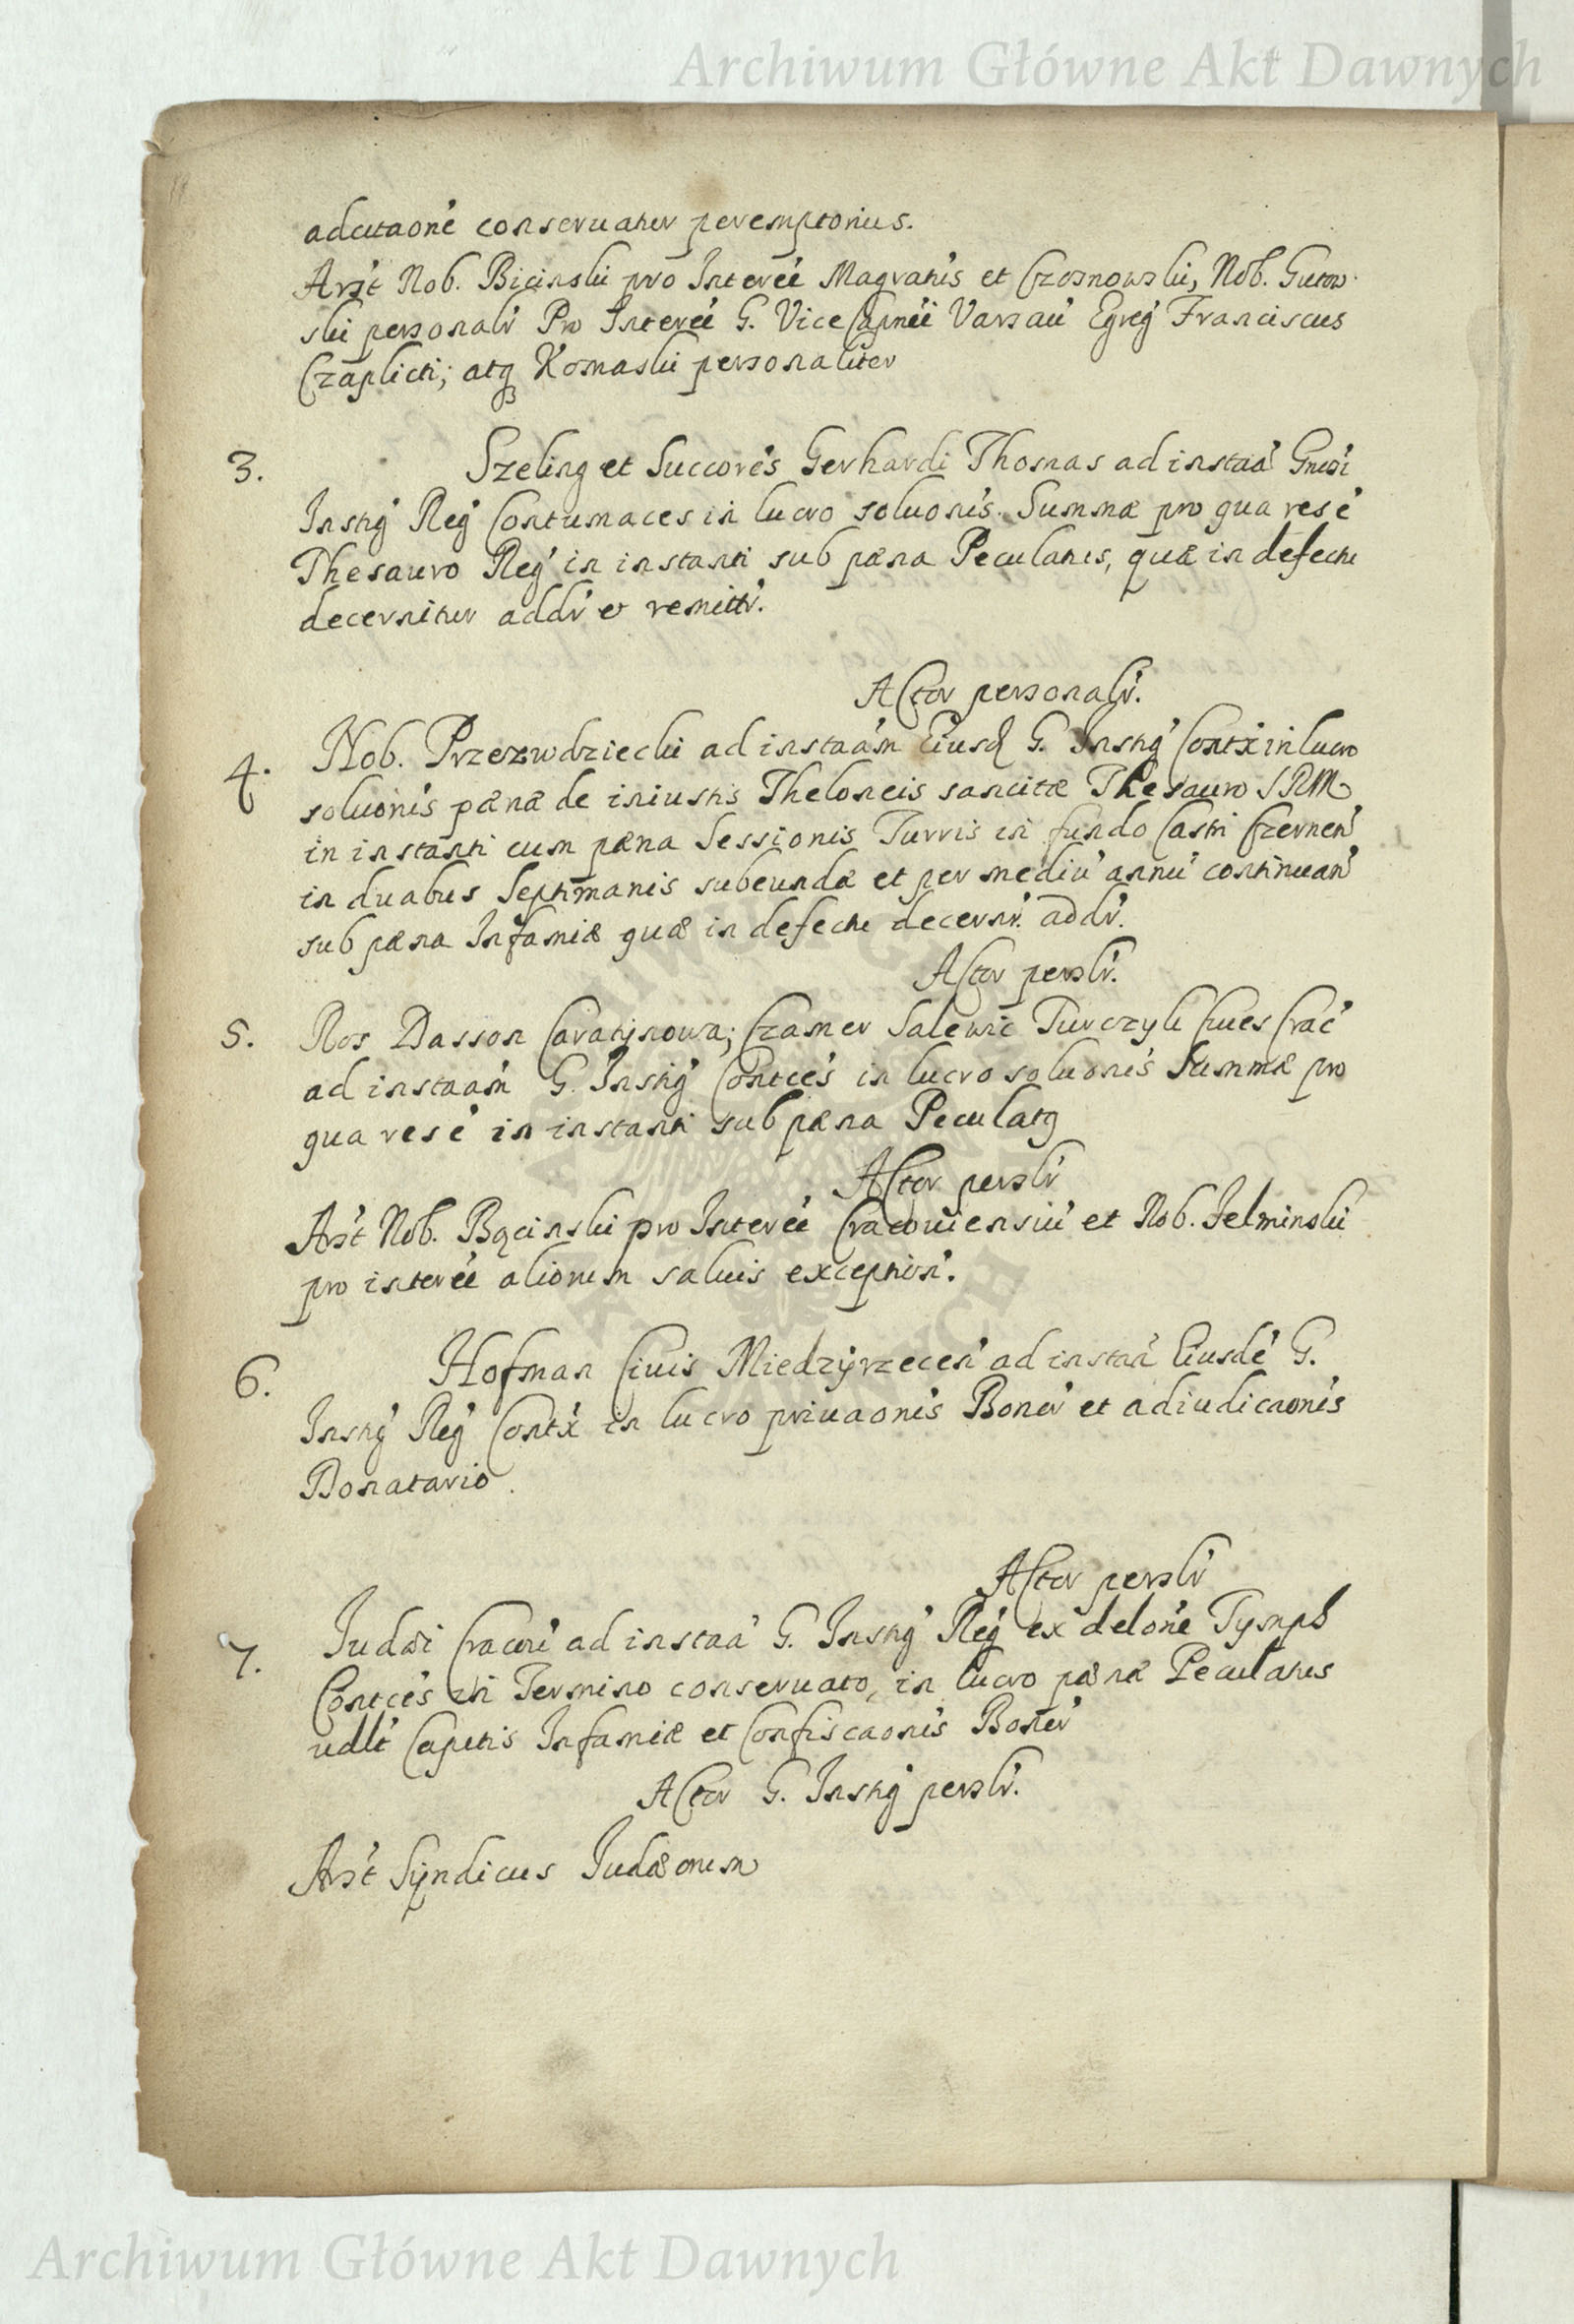 Archiwum Główne Akt Dawnych
adcitaone conservatur peremptorius.
Arst Nob. Bicinski pro Interée Magratis et Czosnowski, Nob. Gutow-
ski personalr Pro Interée G. Vice Capnei Varsau Egreg Franciscus
Czaplicti; atq Komaski personaliter
3. Szeling et Succorés Gerhardi Thomas ad instaa Gnosi
Instig Reg Contumaces in lucro soluonis Summæ pro qua res é
Thesauro Reg in instanti sub pæna Peculatus, quæ in defectu
decernitur addr et remittr.
Actor personalr.
4. Nob. Przezwdziecki ad instaam Eiusd G. Instig Contx in lucro
soluonis pænæ de iniustis Theloneis sancitæ Thesauro SRM
in instanti cum pæna Sessionis Turris in fundo Castri Czernen
in duabus Septimanis subeundæ et per mediu annu continuan
sub pæna Infamiæ quæ in defectu decernr. addr.
Actor perslr.
5. Ros Dasson Caratynowa; Czamer Salewic Turczyk Ciues Crac
ad instaam G. Instig Contces in lucro soluonis Summæ pro
qua res é in instanti sub pæna Peculatq
Actor perslr
Arst Nob. Bącinski pro Interée Cracouiensiu et Nob. Jelminski
pro interée aliorum saluis exception.
6. Hofman Ciuis Miedzÿrzecen ad instaa Eiusdé G.
Instig Reg Contx in lucro priuaonis Bonor et adiudicaonis
Donatario.
Actor perslr
7. Judæi Cracoui ad instaa G. Instig Reg ex deloné Tymph
Contces in Termino conseruato, in lucro pænæ Peculatus
udlt Capitis Infamiæ et Confiscaonis Bonor
Actor G. Instig perslr.
Arst Sÿndicus Judæorum
Archiwum Główne Akt Dawnych